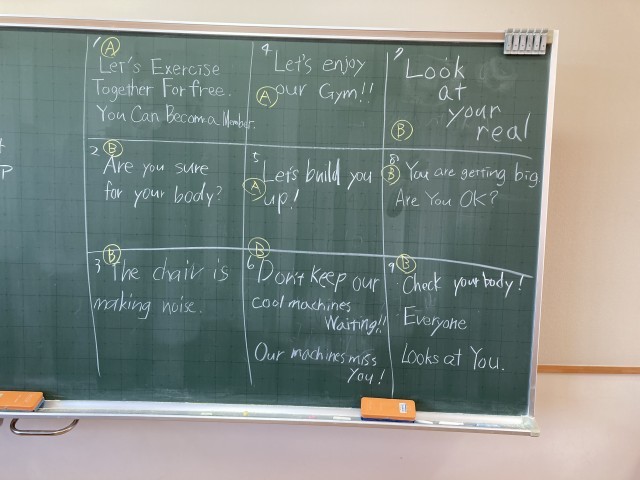 1 A
Let's Exercise
Together For free.
You Can Become a Member.
2 B
Are you sure
for your body?
3 B
The chair is
making noise.
4 Let's enjoy
A our Gym!!
5
A Let's build you
up!
6 B
Don't keep our
cool machines
Waiting!!
Our machines miss
You!
7 Look
at
your
B real
8
B You are getting big.
Are You OK?
9 B
Check your body!
Everyone
Looks at You.
P